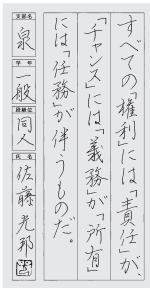 すべての「権利」には「責任」が、
「チャンス」には「義務」が「所有」
には「任務」が伴うものだ。
支部名 泉
学年 一般
段級位 同人
氏名 佐藤光邦